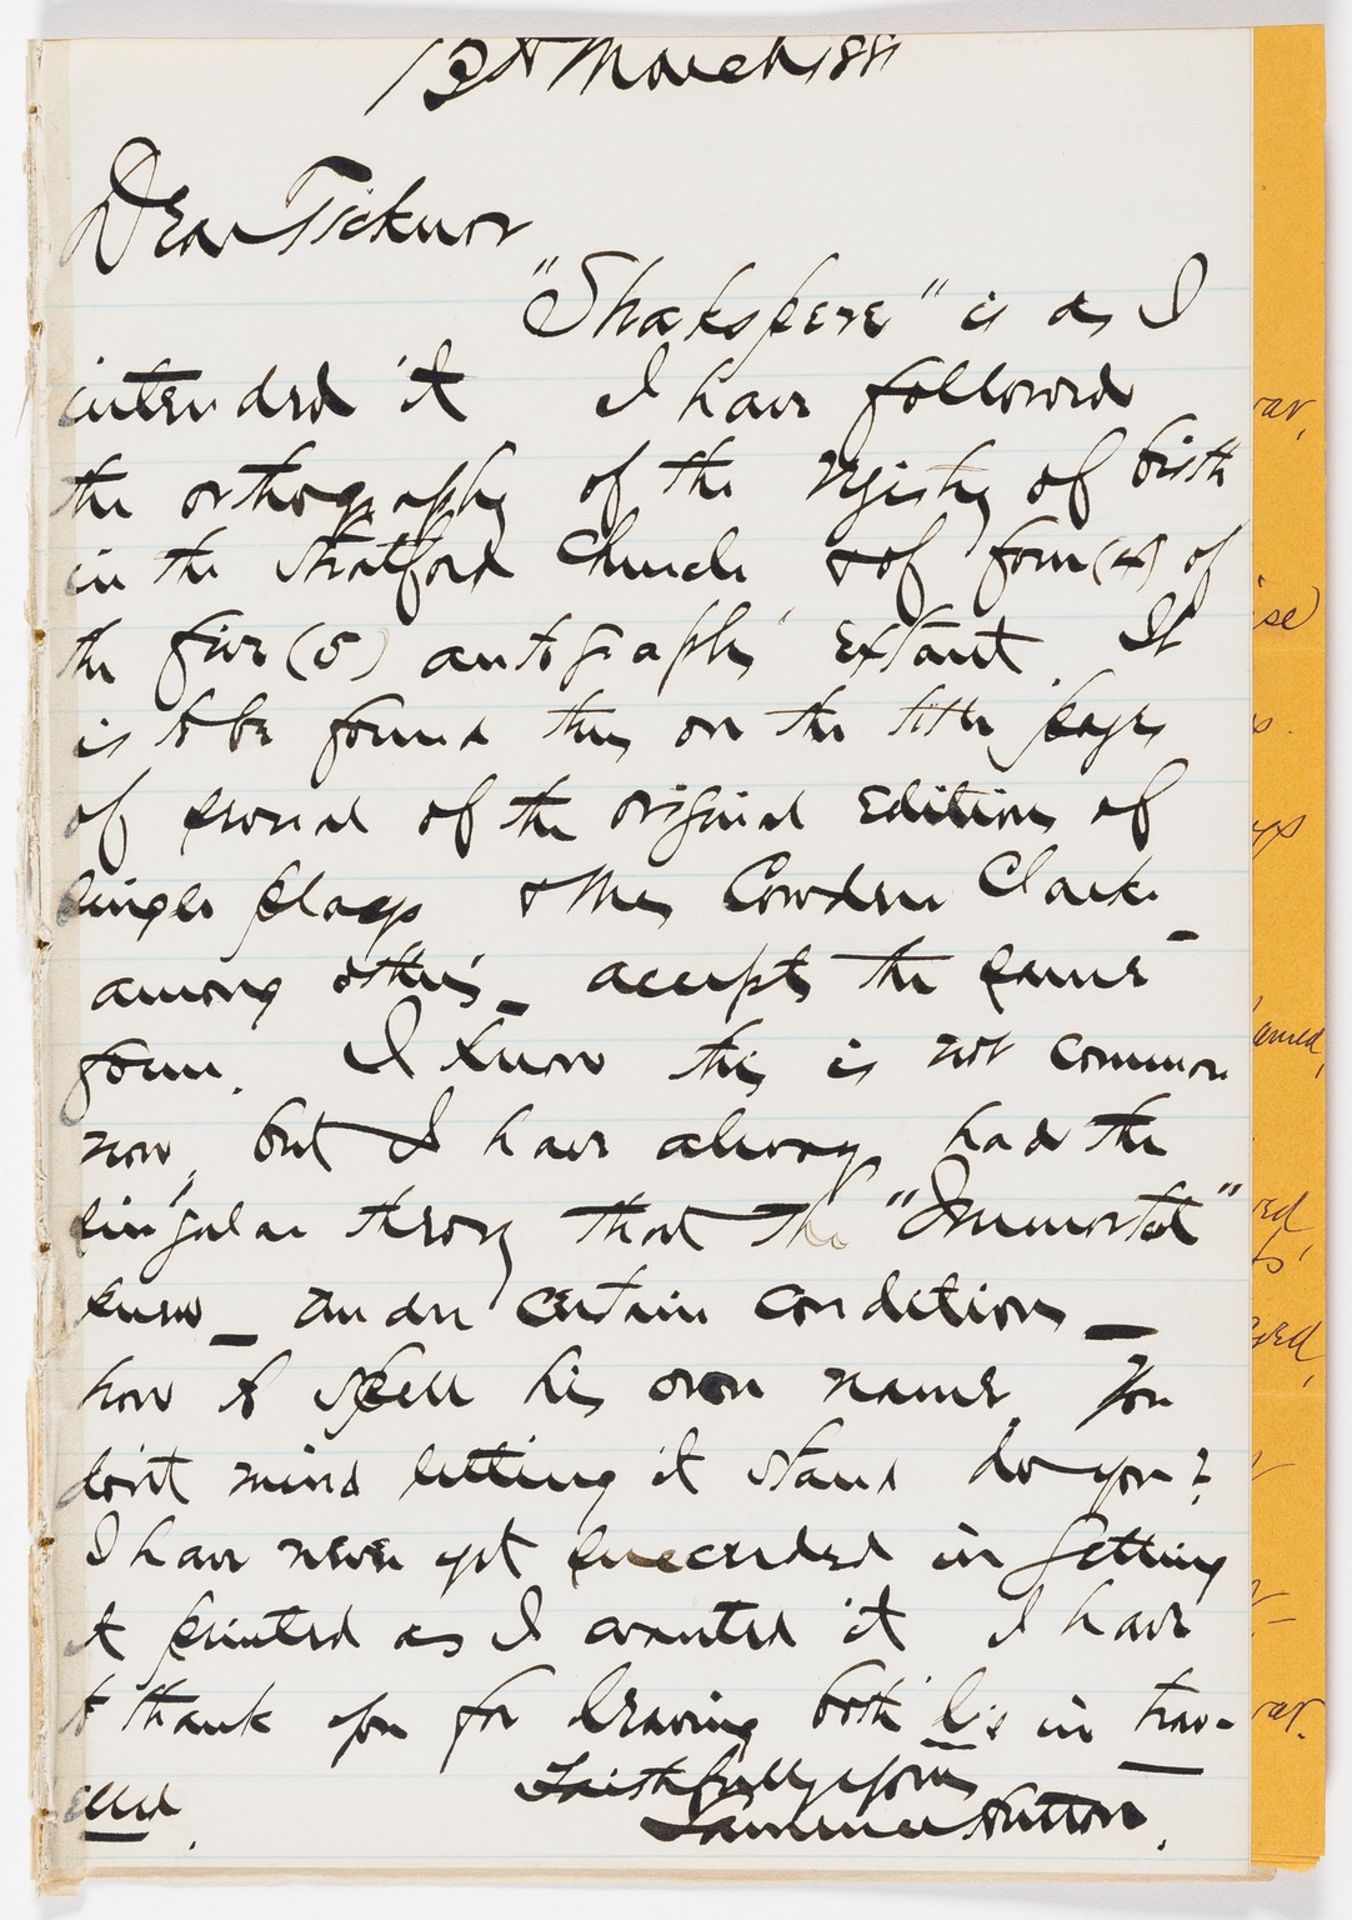 13th March 188
Dear Ticknor
"Shakspere" is as I
intended it I have followed
the orthography of the registry of birth
in the Stratford Church & of four (4) of
the five (5) autographs extant. It
is to be found thus on the title pages
of several of the original editions of
single plays & Mrs Cowden Clarke _
among others _ accepts the same
form. I know this is not common
now, but I have always had the
singular theory that the "Immortal"
knew _ under certain conditions _
how to spell his own name. You
don't mind letting it stand do you?
I have never yet succeeded in getting
it printed as I wanted it I have
to thank you for leaving both l's in trav-
elled.
Faithfully yours
Laurence Hutton.
var,
ise
s.
amed,
red
ts,
var.